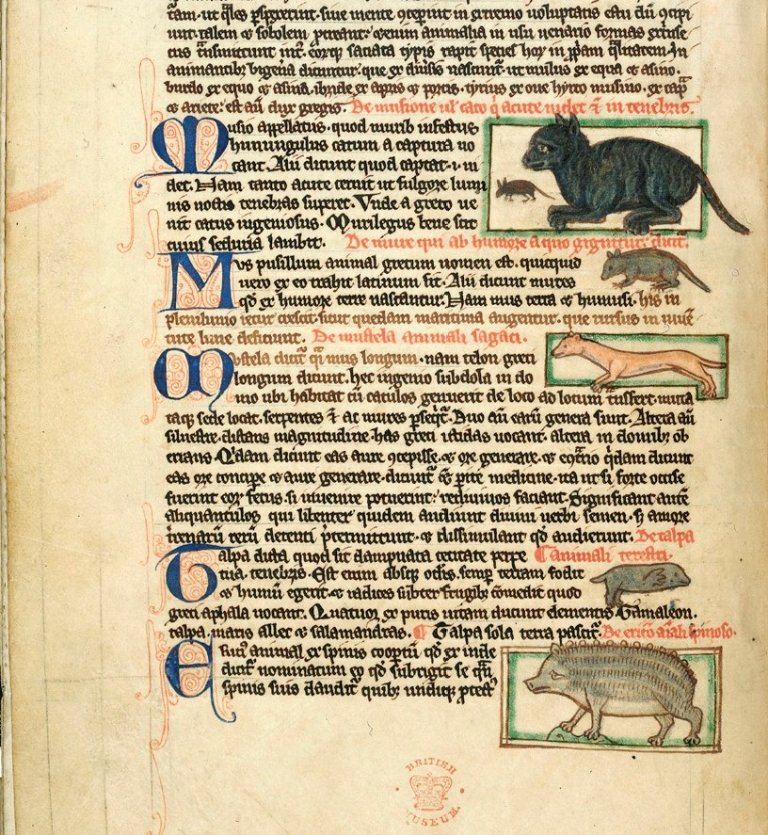 tam. ut q̄les ꝑspexerint. siue mente ꝯcepiūt in extremo uoluptatis estu dū ꝯcipi
unt. talem ⁊ sobolem ꝓcreant. ⁊ enim animalia in usu uenario formas extrinse
cus tͣnsmittunt int͛. eorꝙ saciata typis rapit species hoꝝ in ꝓpam q̄litatem. In
animantibꝰ bigena dicuntur. que ex diu͛sis nascunt͛. ut mulus ex equa ⁊ asino.
burdo ex equo ⁊ asina. ibride ex apris ⁊ porcis. tyrius ex oue hyrco musino. ex cap̄
⁊ ariete. est aū dux gregis. De musione ul' cato qͥ acute uidet ⁊ in tenebris.
Musio appellatus. quod murib infestus
hunuulgulus catum a captura uo
cant. Alii dicunt quod captat. i. ui
det. Nam tanto acute cernit ut fulgore lumi
nis noctis tenebras superet. Vnde a greco ue
nit catus ingeniosus. Murilegus bene scit
cuius
lambit. De mure qui ab humore a quo gignitur. dicit͛.
Mus pusillum animal grecum nomen est. quicquid
uero ex eo trahit latinum fit. Alii dicunt mures
qd̄ ex humore terre nascantur. Nam mus terra ⁊ humusi. his in
plenilunio iecur crescit. sicut quedam maritima augentur. que rursus in minu͛
te lune deficiunt. De mustela animali sagaci.
Mustela dicit͛ qͣi mus longum. nam telon greci
longum dicunt. hec ingenio subdola in do
mo ubi habitat cū catulos genuerit de loco ad locum tͣnsfert. muta
taq̨ sede locat. serpentes ⁊ ac mures ꝑseqͥt͛. Duo aū earū genera sunt. Altera aū
siluestre. distans magnitudine. has greci ictidas uocant. altera in domibꝰ ob
erians. Qͥdam dicunt eas aure ꝯcepisse. ⁊ ore generare. ⁊ eͨtͣrio qͥdam dicunt
eas ore concipe ⁊ aure generare. dicunt͛ ⁊ ꝑite medicine. ita ut si forte occise
fuerint eoꝝ fetus. si inuenire potuerint. rediuiuos faciant. Significant autē
aliquantulos qui libenter quidem audiunt diuini uerbi semen. s; amore
terrenarū rerū detenti p̄termittunt. ⁊ dissimulant qd̄ audierunt. De talpa
Talpa dicta quod sit dampnata cecitate perpe ¶ animali terestri.
tua. tenebris. Est enim absq̨ oclis. semꝑ terram fodit
⁊ humū egerit. ⁊ radices subter frugibꝰ comedit quod
greci aphala uocant. Quatuor ex puris uitam ducunt elementis. Gamaleon.
talpa. maris allec ⁊ salamandras. ¶ Talpa sola terra pascit͛. De ericio aīali spinoso.
Eriuꝰ animal ex spinis coopertū qd̄ ex inde
dicit͛ nominatum eo qd̄ subrigit se qͣn
spinis suis claudit͛ quibꝰ undiq̨ ꝓtectꝰ
BRITISH
MUSEUM